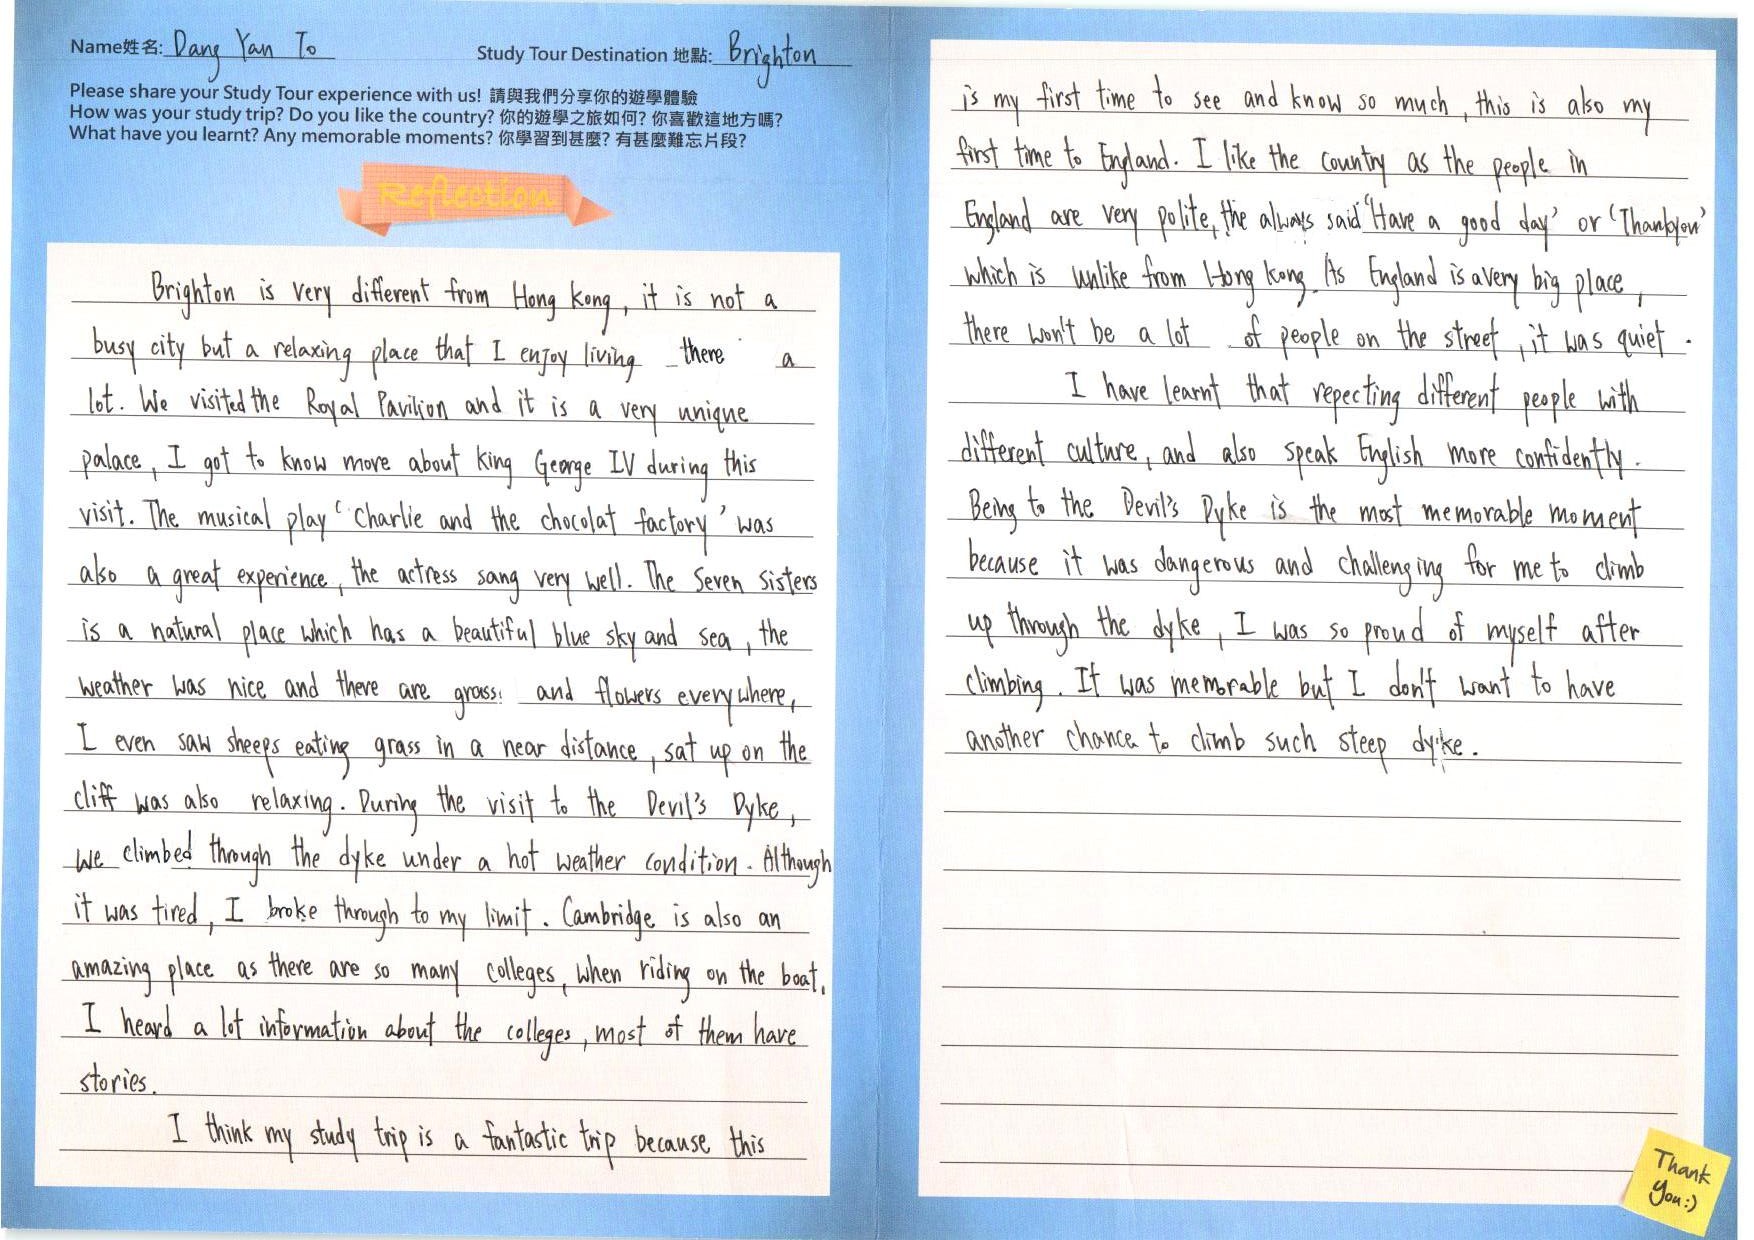 Name姓名: Dang Yan To
Study Tour Destination 地點: Brighton
Please share your Study Tour experience with us! 請與我們分享你的遊學體驗
How was your study trip? Do you like the country? 你的遊學之旅如何? 你喜歡這地方嗎?
What have you learnt? Any memorable moments? 你學習到甚麼? 有甚麼難忘片段?
Reflection
Brighton is very different from Hong Kong, it is not a
busy city but a relaxing place that I enjoy living there a
lot. We visited the Royal Pavilion and it is a very unique
palace, I got to know more about King George IV during this
visit. The musical play 'Charlie and the chocolat factory' was
also a great experience, the actress sang very well. The Seven Sisters
is a natural place which has a beautiful blue sky and sea, the
weather was nice and there are grass and flowers everywhere,
I even saw sheeps eating grass in a near distance, sat up on the
cliff was also relaxing. During the visit to the Devil's Dyke,
we climbed through the dyke under a hot weather condition. Although
it was tired, I broke through to my limit. Cambridge is also an
amazing place as there are so many colleges, when riding on the boat,
I heard a lot information about the colleges, most of them have
stories.
I think my study trip is a fantastic trip because this
is my first time to see and know so much, this is also my
first time to England. I like the country as the people in
England are very polite, the always said 'Have a good day' or 'Thankyou'
which is unlike from Hong Kong. As England is a very big place,
there won't be a lot of people on the street, it was quiet.
I have learnt that repecting different people with
different culture, and also speak English more confidently.
Being to the Devil's Dyke is the most memorable moment
because it was dangerous and challenging for me to climb
up through the dyke, I was so proud of myself after
climbing. It was memorable but I don't want to have
another chance to climb such steep dyke.
Thank
You:)